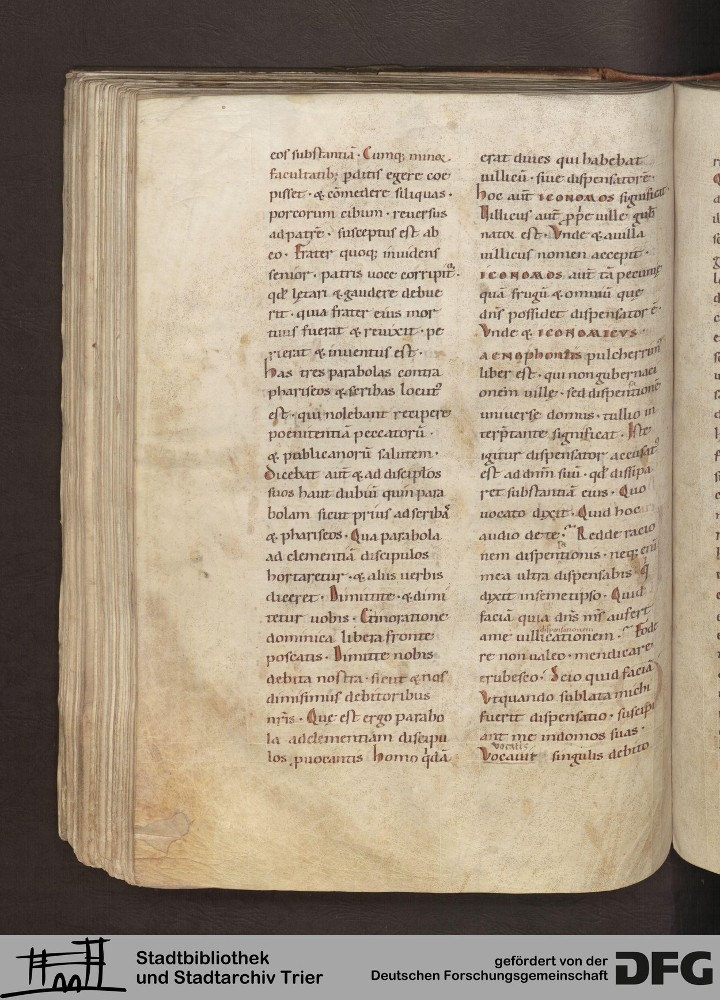 eos substantiā · Cumq; minor
facultatib; pditis egere coe
pisset · & cōmedere siliquas ·
porcorum cibum · reuersus
ad patrē · susceptus est ab
eo · Frater quoq; inuidens
senior · patris uoce corripit᷒ ·
qđ lętari & gaudere debue
rit · quia frater eius mor
tuus fuerat & reuixit · pe
rierat & inuentus est ·
Has tres parabolas contra
phariseos & scribas locut᷒
est · qui nolebant recipere
poenitentiā peccatorū ·
& publicanorū salutem ·
Dicebat aut̄ & ad disciplos
suos haut dubiū quin para
bolam sicut prius ad scribas
& phariseos · Qua parabola
ad clementiā discipulos
hortaretur · & aliis uerbis
diceret · Dimittite · & dimi
tetur uobis · Et in oratione
dominica libera fronte
poscatis · Dimitte nobis
debita nostra · sicut & nos
dimisimus debitoribus
nr̄is · Que est ergo parabo
la ad clementiam discipu
los puocantis Homo q̇dā
erat diues qui habebat
uillicū · siue dispensatorē ·
hoc aut̄ ICONOMOS significat
Uillicus aut̄ ppe uille gub
nator est · Unde & a uilla
uillicus nomen accepit ·
ICONOMOS aut̄ tā pecunie
quā frugū & omniū que
dn̄s possidet dispensator ē ·
Unde & ICONOMICUS ·
XENOPHONTIS pulcherrim᷒
liber est · qui non gubernaci
onem uille · sed dispentione
uniuerse domus · tullio in
terp̄tante significat · Iste
igitur dispensator accusat᷒
est ad dn̄m suū · qđ dissipa
ret substantiā eius · Quo
uocato dixit · Quid hoc
audio de te · Redde racio
nem dispentionis · neq; enī
mea ultra dispensabis · q
dixit in semetipso · Quid
faciā quia dn̄s m̄s aufert
a me uillicationem · Fode
re non ualeo · mendicare
erubesco · Scio quid faciā
Ut quando sublata michi
fuerit dispensatio · suscipi
ant me in domos suas ·
Vocauit singulis debito
Stadtbibliothek
und Stadtarchiv Trier
gefördert von der
Deutschen Forschungsgemeinschaft
DFG